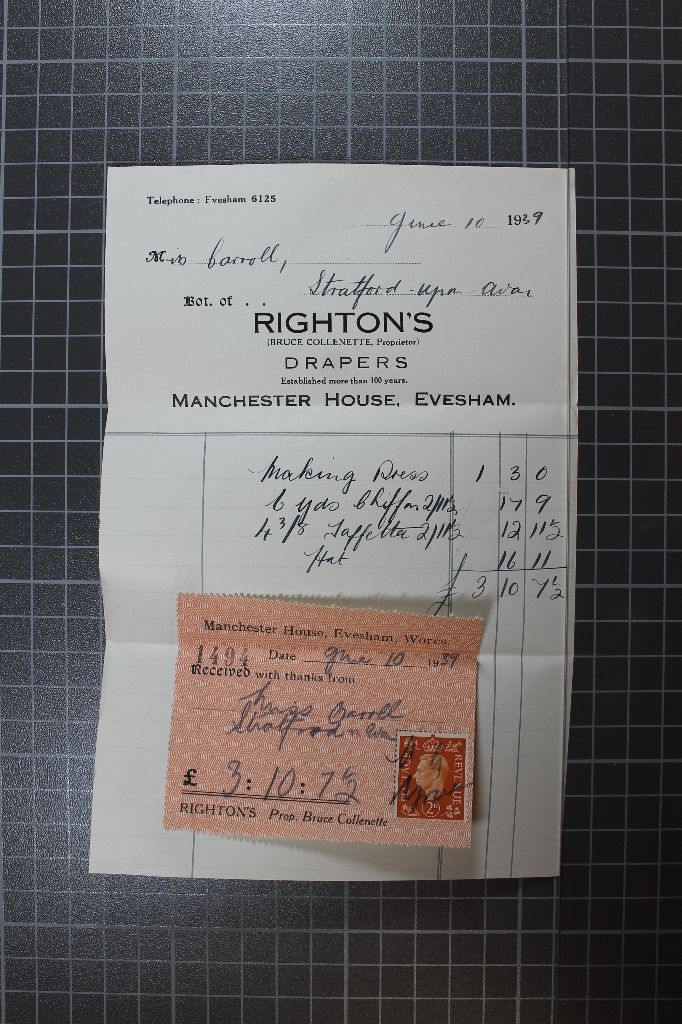 Telephone: Evesham 6125
June 10 1939
Miss Carroll,
Stratford-upon-Avon
Bot. of . .
RIGHTON'S
(BRUCE COLLENETTE, Proprietor)
DRAPERS
Established more than 100 years.
MANCHESTER HOUSE, EVESHAM.
Making Dress 1 3 0
6 yds Chiffon 2/11½ 17 9
4 3/8 Taffetta 2/11½ 12 11½
Hat 16 11
£ 3 10 7½
Manchester House, Evesham, Worcs
1494 Date June 10 1939
Received with thanks from
Miss Carroll
Stratford
£ 3:10:7½
POSTAGE REVENUE
2D
RIGHTON'S Prop. Bruce Collenette